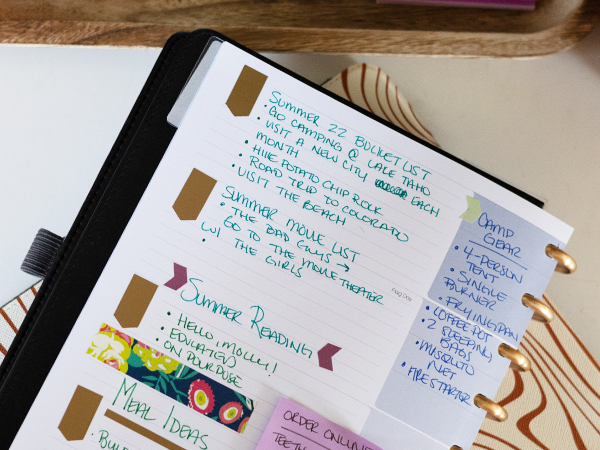 SUMMER 22 BUCKET LIST
• GO CAMPING @ LAKE TAHO
• VISIT A NEW CITY EACH
MONTH
• HIKE POTATO CHIP ROCK
• ROAD TRIP TO COLORADO
• VISIT THE BEACH
SUMMER MOVIE LIST
• THE BAD GUYS →
GO TO THE MOVIE THEATER
W/ THE GIRLS
•
SUMMER READING
• HELLO, MOLLY!
• EDUCATED
• ON PURPOSE
MEAL IDEAS
CAMP
GEAR
• 4-PERSON
TENT
• SINGLE
BURNER
• FRYING PAN
• COFFEE POT
• 2 SLEEPING
BAGS
• MOSQUITO
NET
• FIRE STARTER
ORDER ONLINE
TEETH